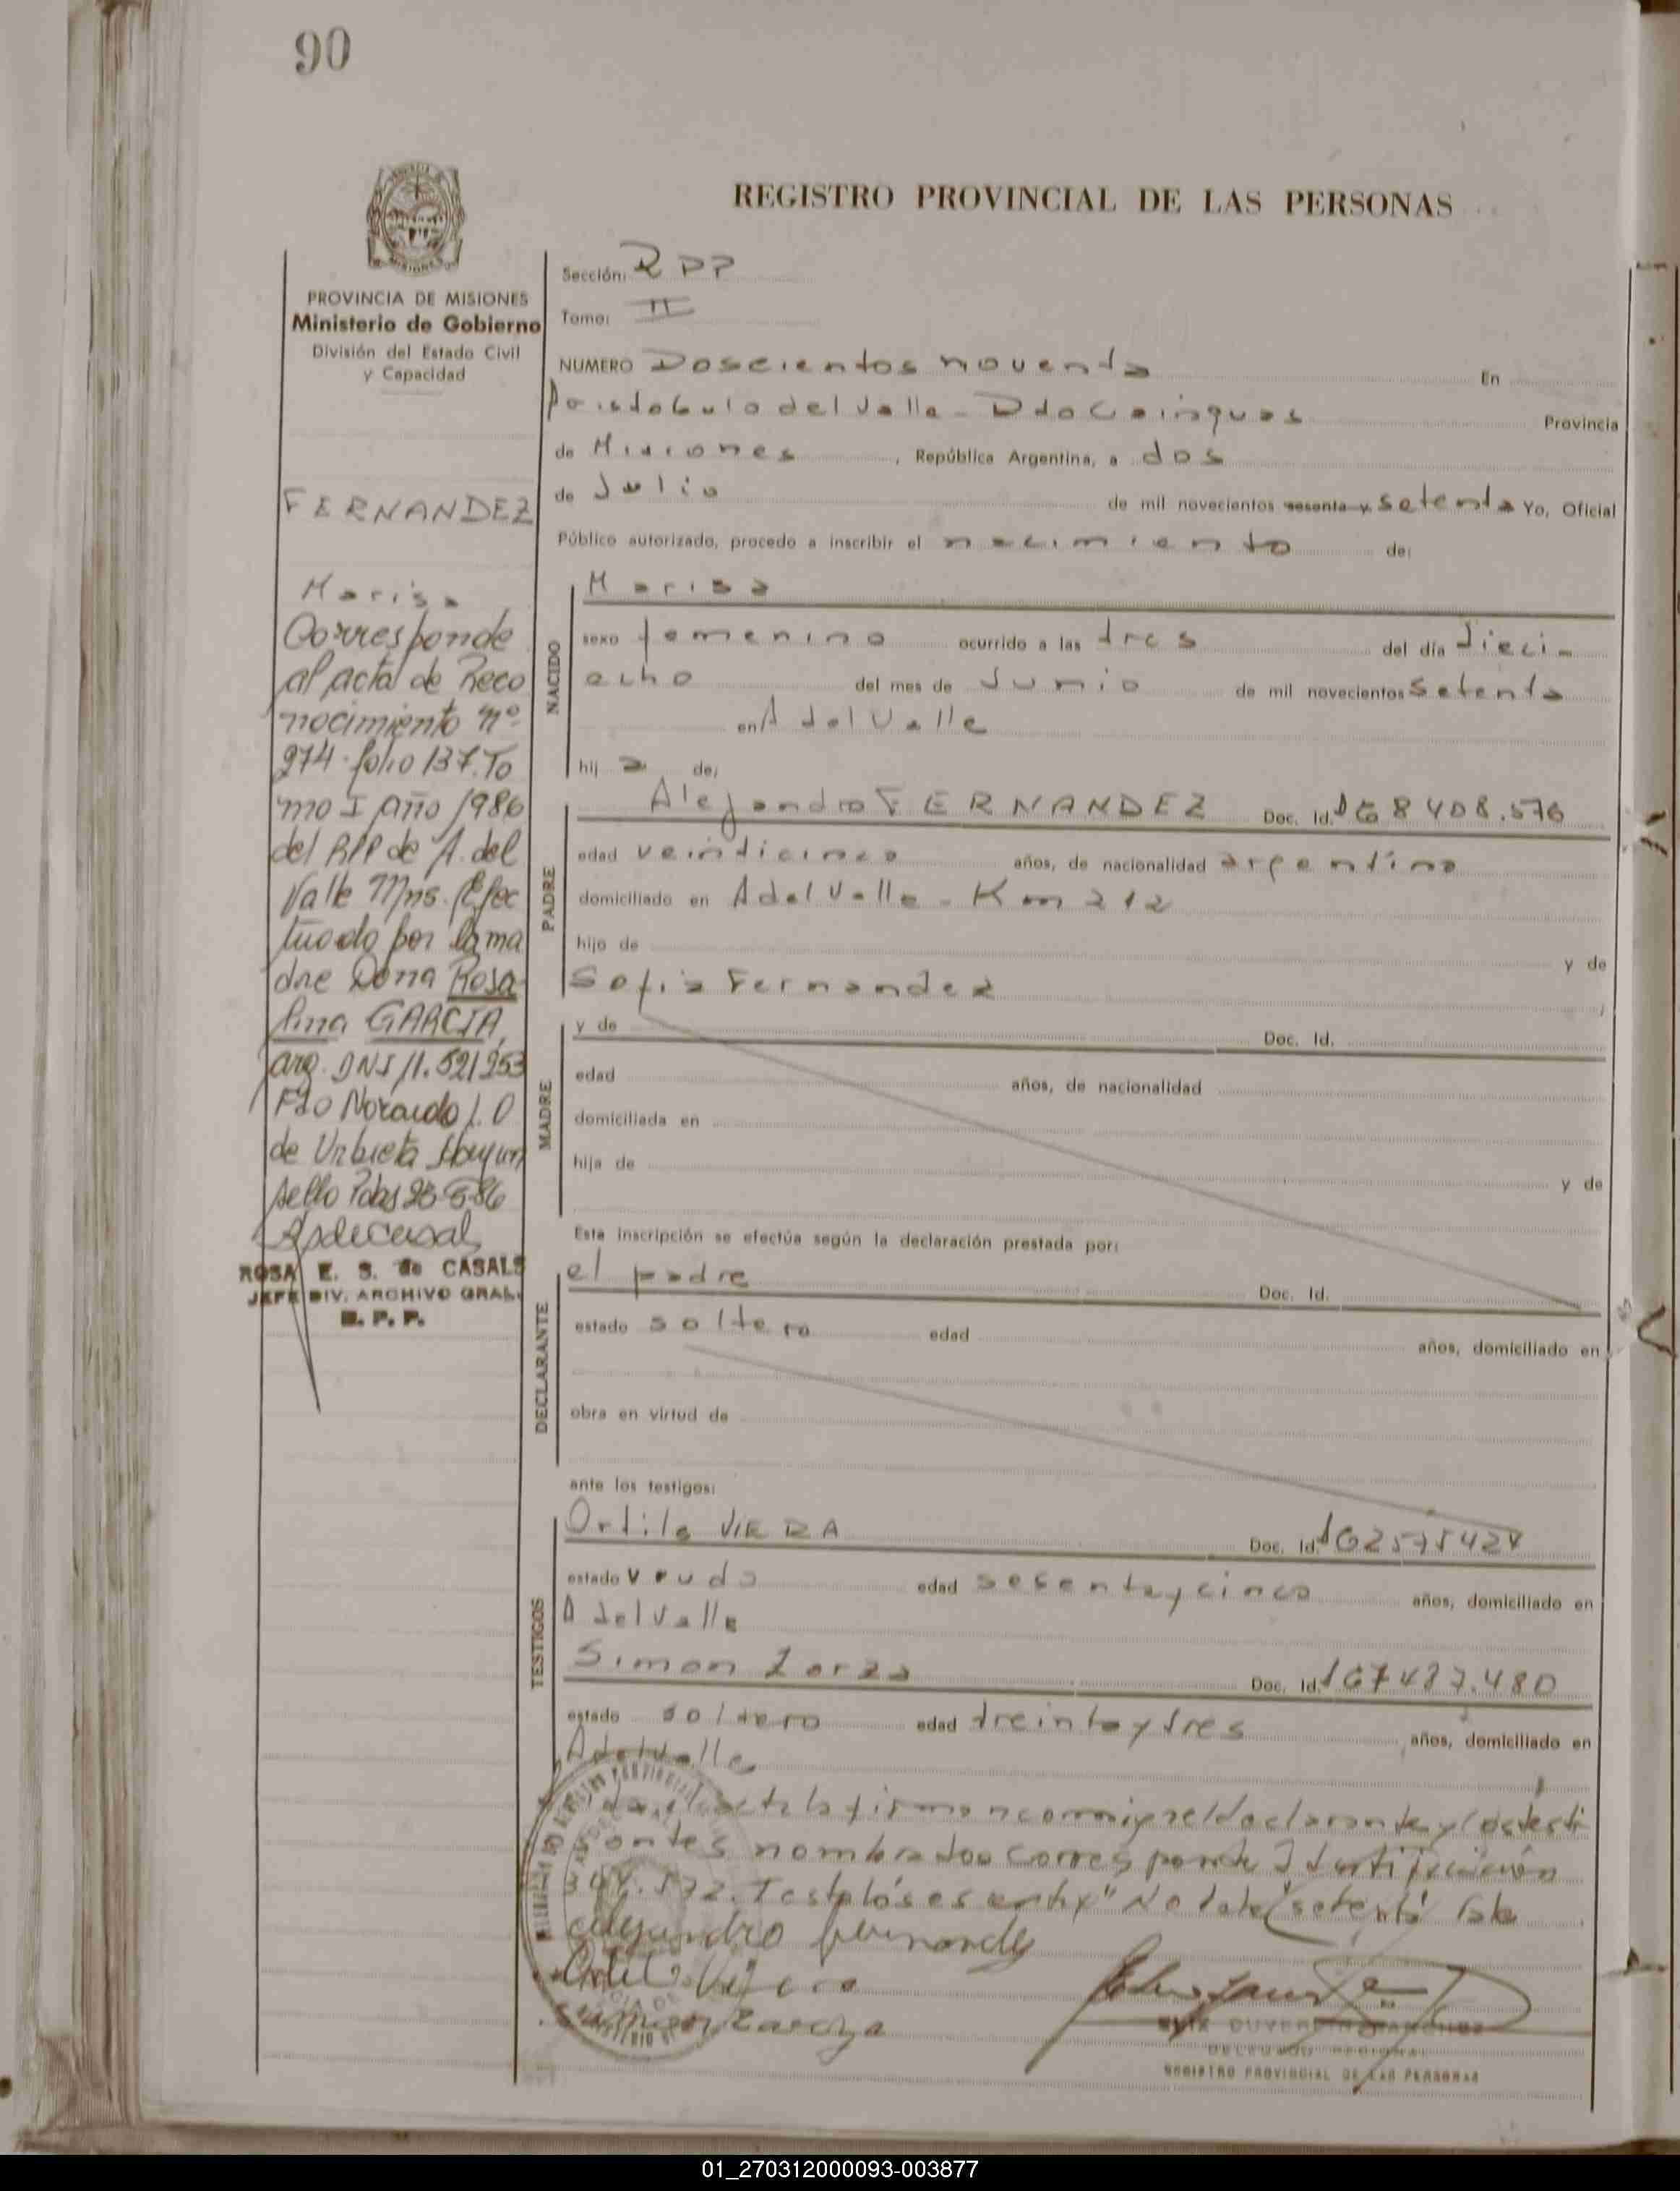 90
REGISTRO PROVINCIAL DE LAS PERSONAS
PROVINCIA DE MISIONES
Ministerio de Gobierno
División del Estado Civil
y Capacidad
FERNANDEZ
Marisa
Corresponde
al acta de Reco
nocimiento nº
274 folio 137. To
mo I Año 1986
del RPP de A. del
Valle Mns. Efec
tuado por la ma
dre Doña Rosa
lina GARCIA,
arg. DNI 11.521953
Fdo
de Urbieta
sello Pdas 25-5-86
ROSA E. S. de CASALS
JEFE DIV. ARCHIVO GRAL.
R. P. P.
Sección: RPP
Tomo: II
NUMERO Doscientos noventa En
Aristobulo del Valle - Dto Cainguas Provincia
de Misiones, República Argentina, a dos
de Julio de mil novecientos sesenta y setenta Yo, Oficial
Público autorizado, procedo a inscribir el nacimiento de:
NACIDO
Marisa
sexo femenino ocurrido a las tres del día dieci-
ocho del mes de Junio de mil novecientos setenta
en A del Valle
hij a de:
PADRE
Alejandro FERNANDEZ Doc. Id. 8408.576
edad veinticinco años, de nacionalidad argentino
domiciliado en A del Valle - Km 212
hijo de y de
Sofia Fernandez
MADRE
y de Doc. Id.
edad años, de nacionalidad
domiciliada en
hija de y de
Esta inscripción se efectúa según la declaración prestada por:
DECLARANTE
el padre Doc. Id.
estado soltero edad años, domiciliado en
obra en virtud de
ante los testigos:
TESTIGOS
Ortila VIERA Doc. Id.
estado viuda edad sesenta y cinco años, domiciliado en
A del Valle
Simon Zarza Doc. Id.
estado soltero edad treinta y tres años, domiciliado en
A del Valle
acta la firman conmigo el declarante y los testi
nombrados corresponde
setenta
Alejandro Fernandez
Simon Zarza
DELEGADO REGIONAL
REGISTRO PROVINCIAL DE LAS PERSONAS
01_270312000093-003877